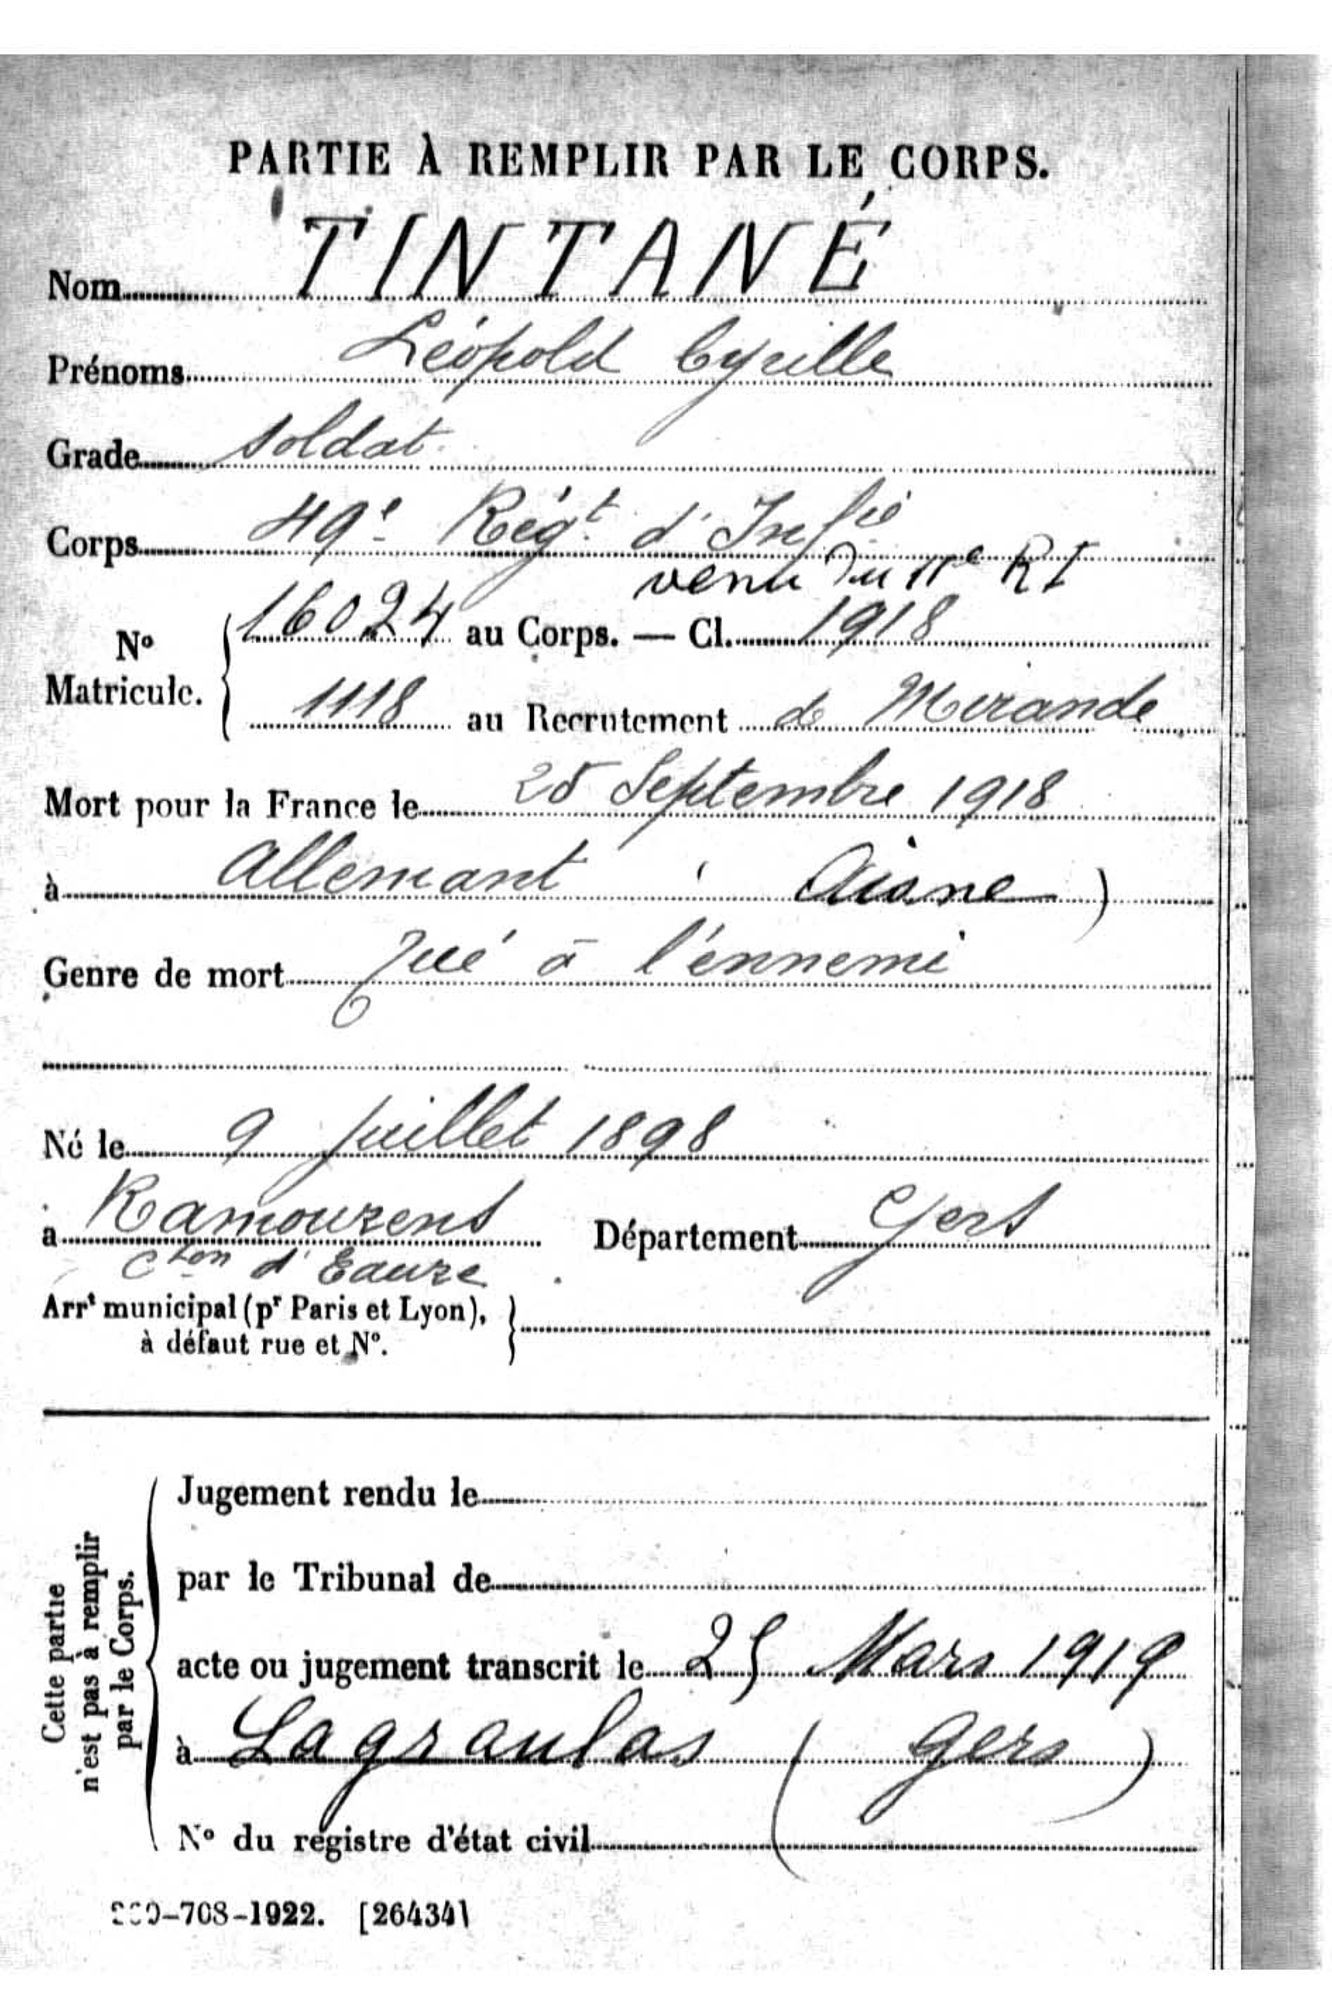 PARTIE À REMPLIR PAR LE CORPS.
Nom TINTANÉ
Prénoms Léopold Cyrille
Grade soldat
Corps 49e Régt d'Infie
venu du 11e RI
No Matricule. 16024 au Corps. — Cl. 1918
1118 au Recrutement de Mirande
Mort pour la France le 25 Septembre 1918
à Allemant ( Aisne )
Genre de mort Tué à l'ennemi
Né le 9 Juillet 1898
a Ramouzens Département Gers
Cton d'Eauze
Arrt municipal (pr Paris et Lyon),
à défaut rue et No.
Cette partie
n'est pas à remplir
par le Corps.
Jugement rendu le
par le Tribunal de
acte ou jugement transcrit le 25 Mars 1919
à Lagraulas ( Gers )
No du registre d'état civil
-708-1922. [26434]